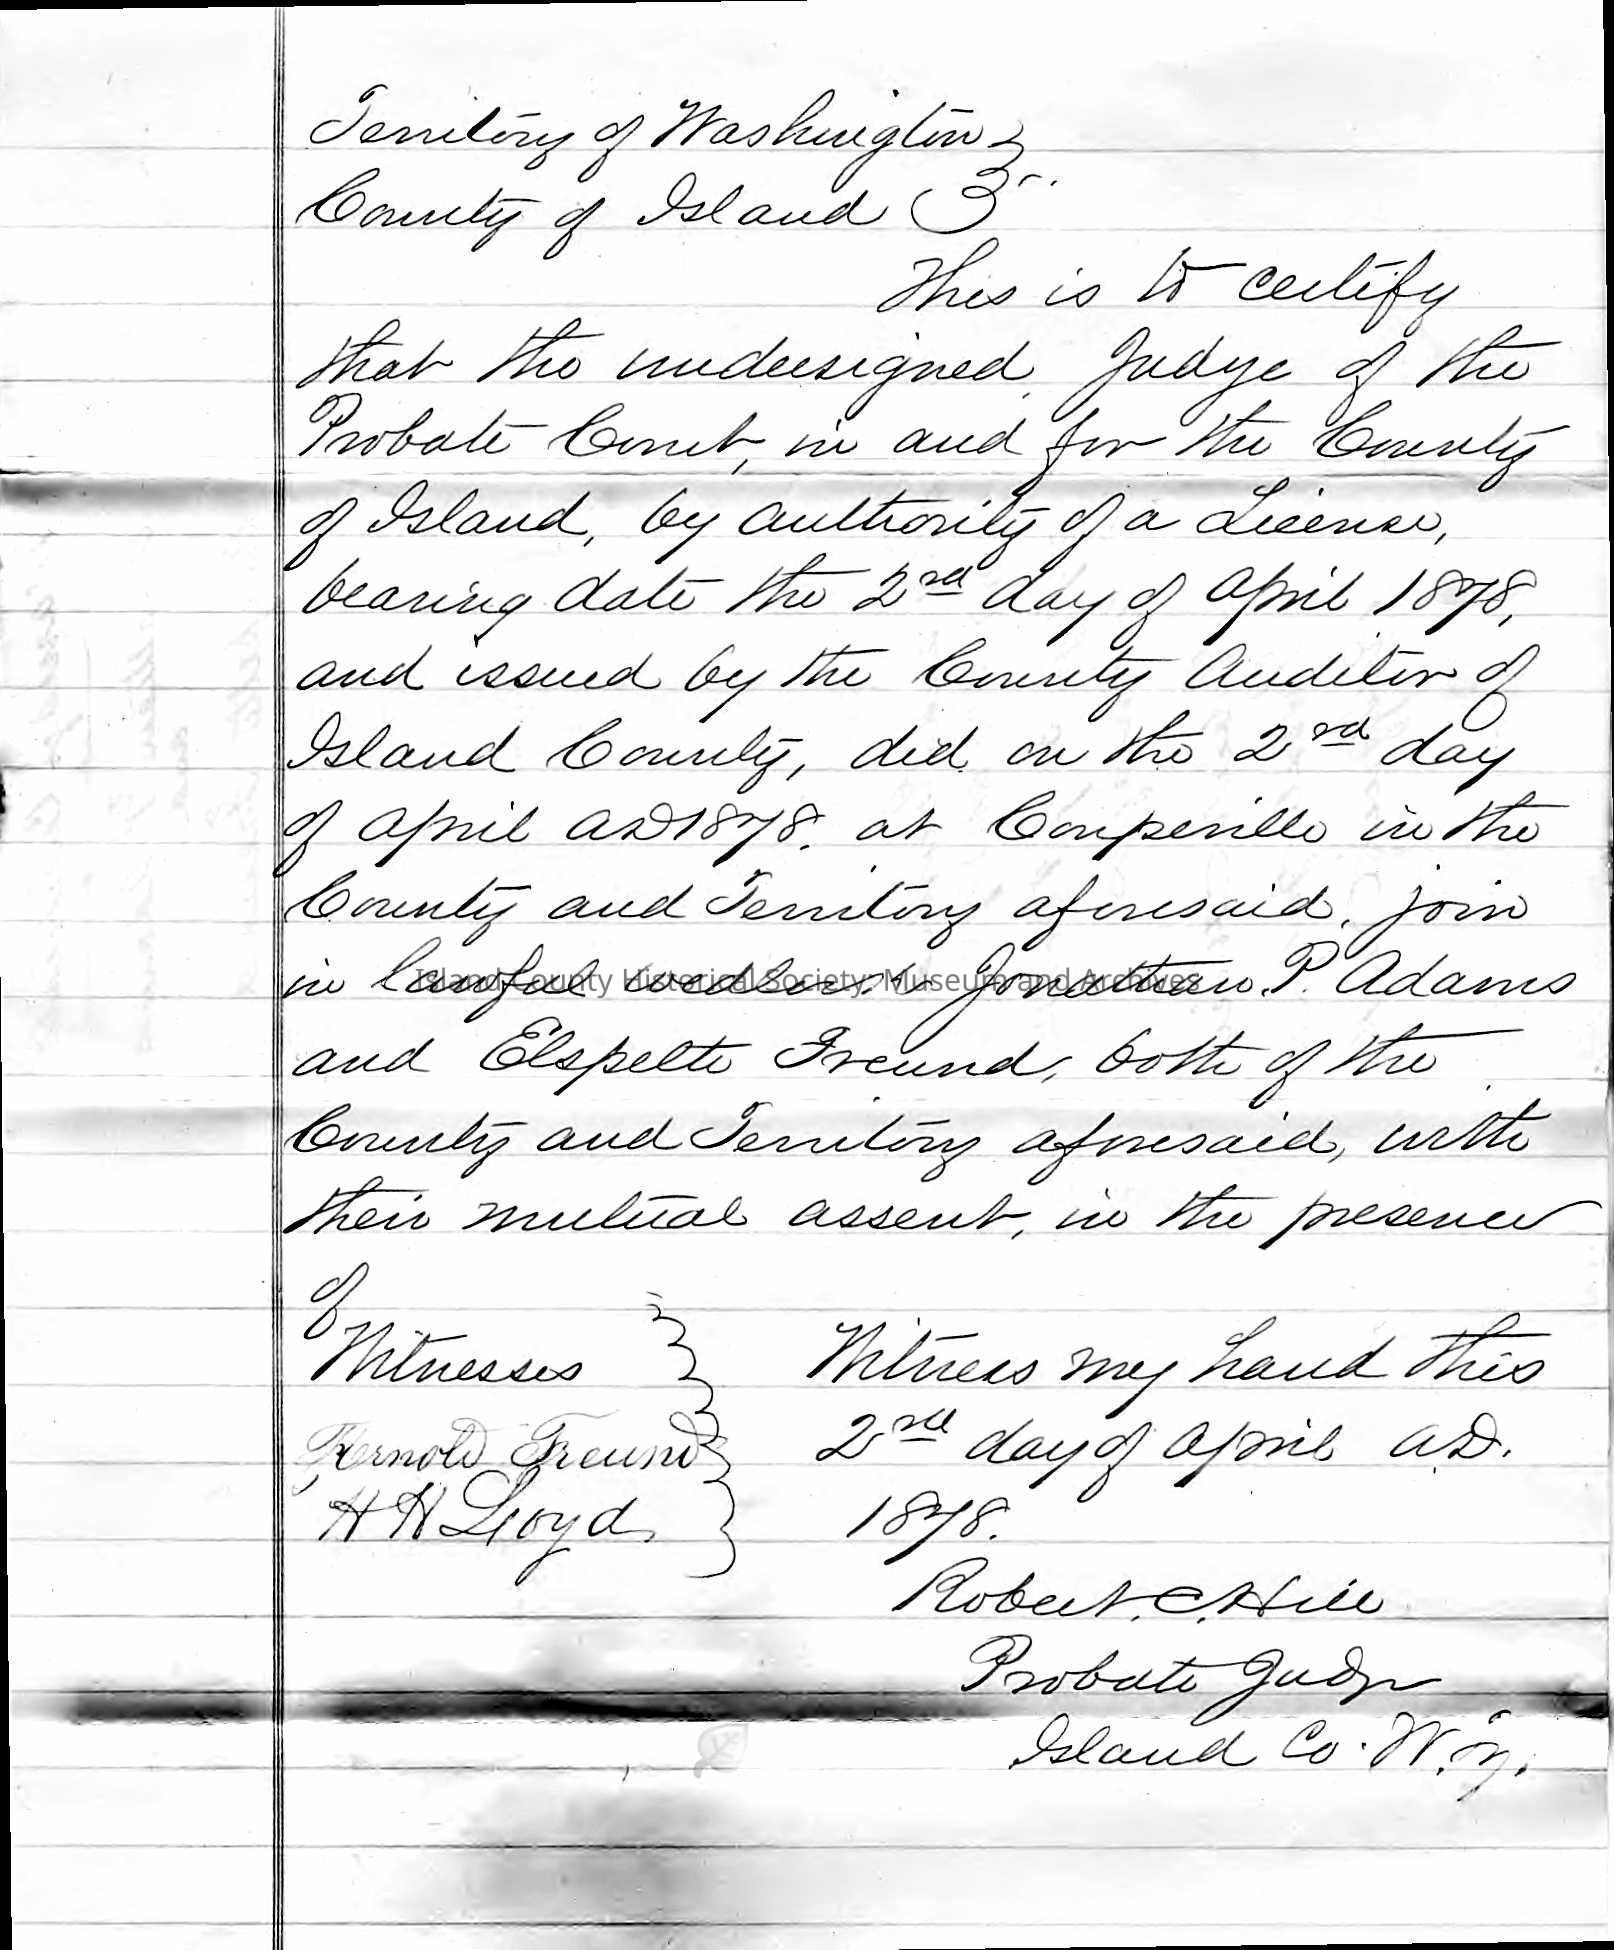 Territory of Washington }
County of Island }
This is to certify
that the undersigned Judge of the
Probate Court, in and for the County
of Island, by authority of a License,
bearing date the 2rd day of April 1878,
and issued by the County Auditor of
Island County, did on the 2rd day
of April AD 1878. at Coupeville in the
County and Territory aforesaid, join
in lawful wedlock Jonathan P. Adams
Island County Historical Society: Museum and Archives
and Elspelte Freund, both of the
County and Territory aforesaid, with
their mutual assent, in the presence
of
Witnesses } Witness my hand this
Arnold Freund } 2rd day of April A.D.
H H Lloyd } 1878.
Robert. C. Hill
Probate Judge
Island Co. W.Ty.